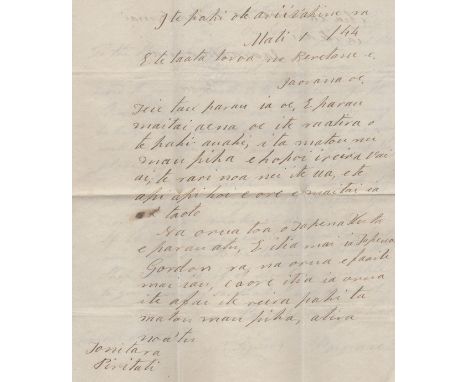 I te pahi o te arii vahine ra
Mati 1 1844
E te taata toroa no Beretane e.
Iaorana oe.
Teie tau parau ia oe, E parau
maitai aena oe i te raatira o
te pahi auahi, i ta matou nei
mau piha e hopoi i reira vai
ai, te rari noa nei i te ua, e te
api api hoi e ore e maitai ia
taoto
Na orua toa o Tapena
e parau atu, E itia mai ia Tapena
Gordon ra, na orua e faaite
mai iau, ia ore itia ia orua
i te afai i te reira pahi ta
matou mau piha, atira
noa'tu
Tonitara
Piritati